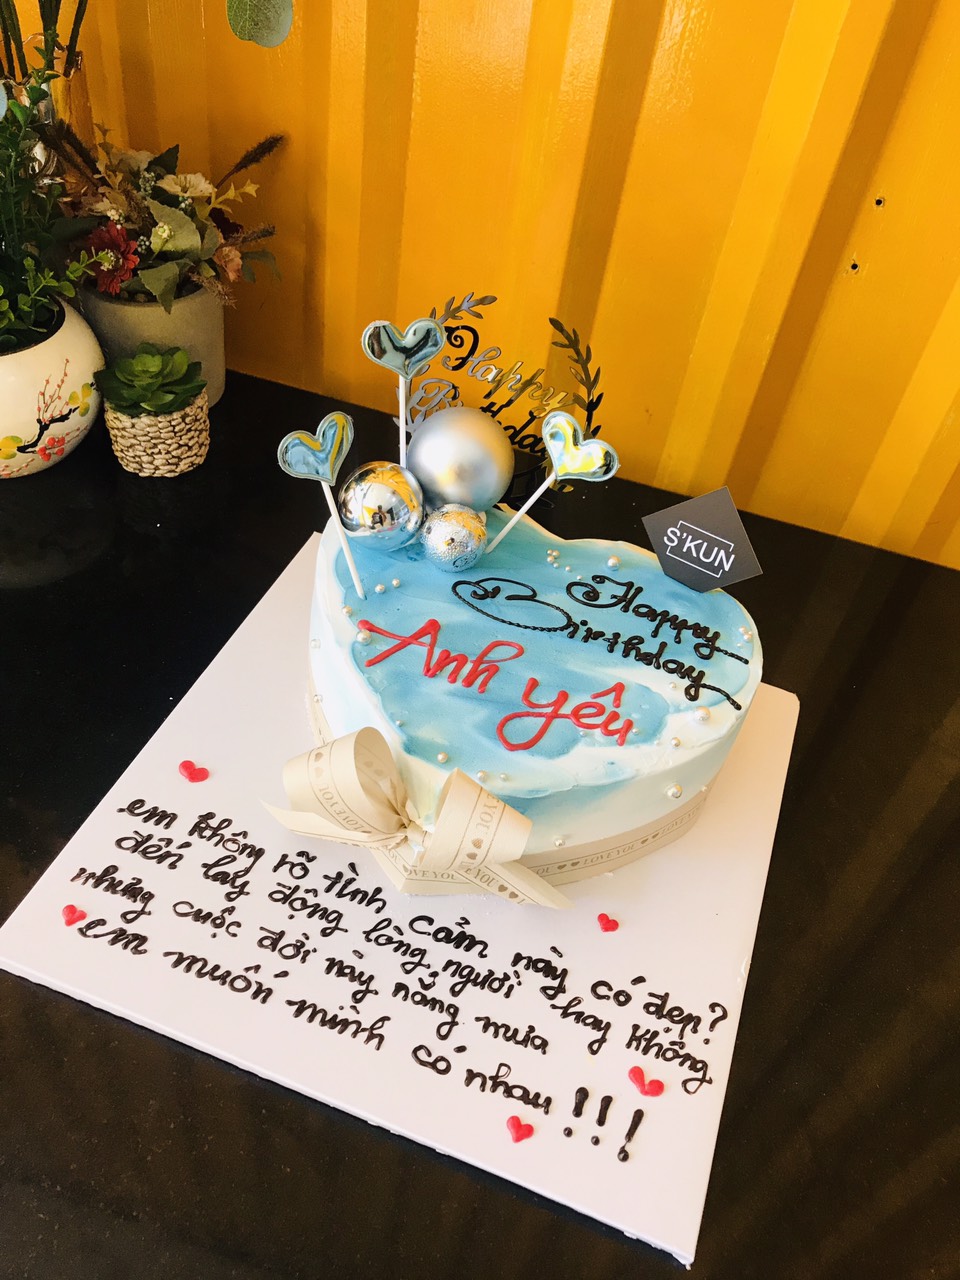 Happy
Birthday
S'KUN
Happy
Birthday
Anh yêu
LOVE YOU
LOVE YOU
LOVE YOU
em không rõ tình cảm này có đẹp?
đến lay động lòng người hay không
nhưng cuộc đời này nắng mưa
em muốn mình có nhau !!!